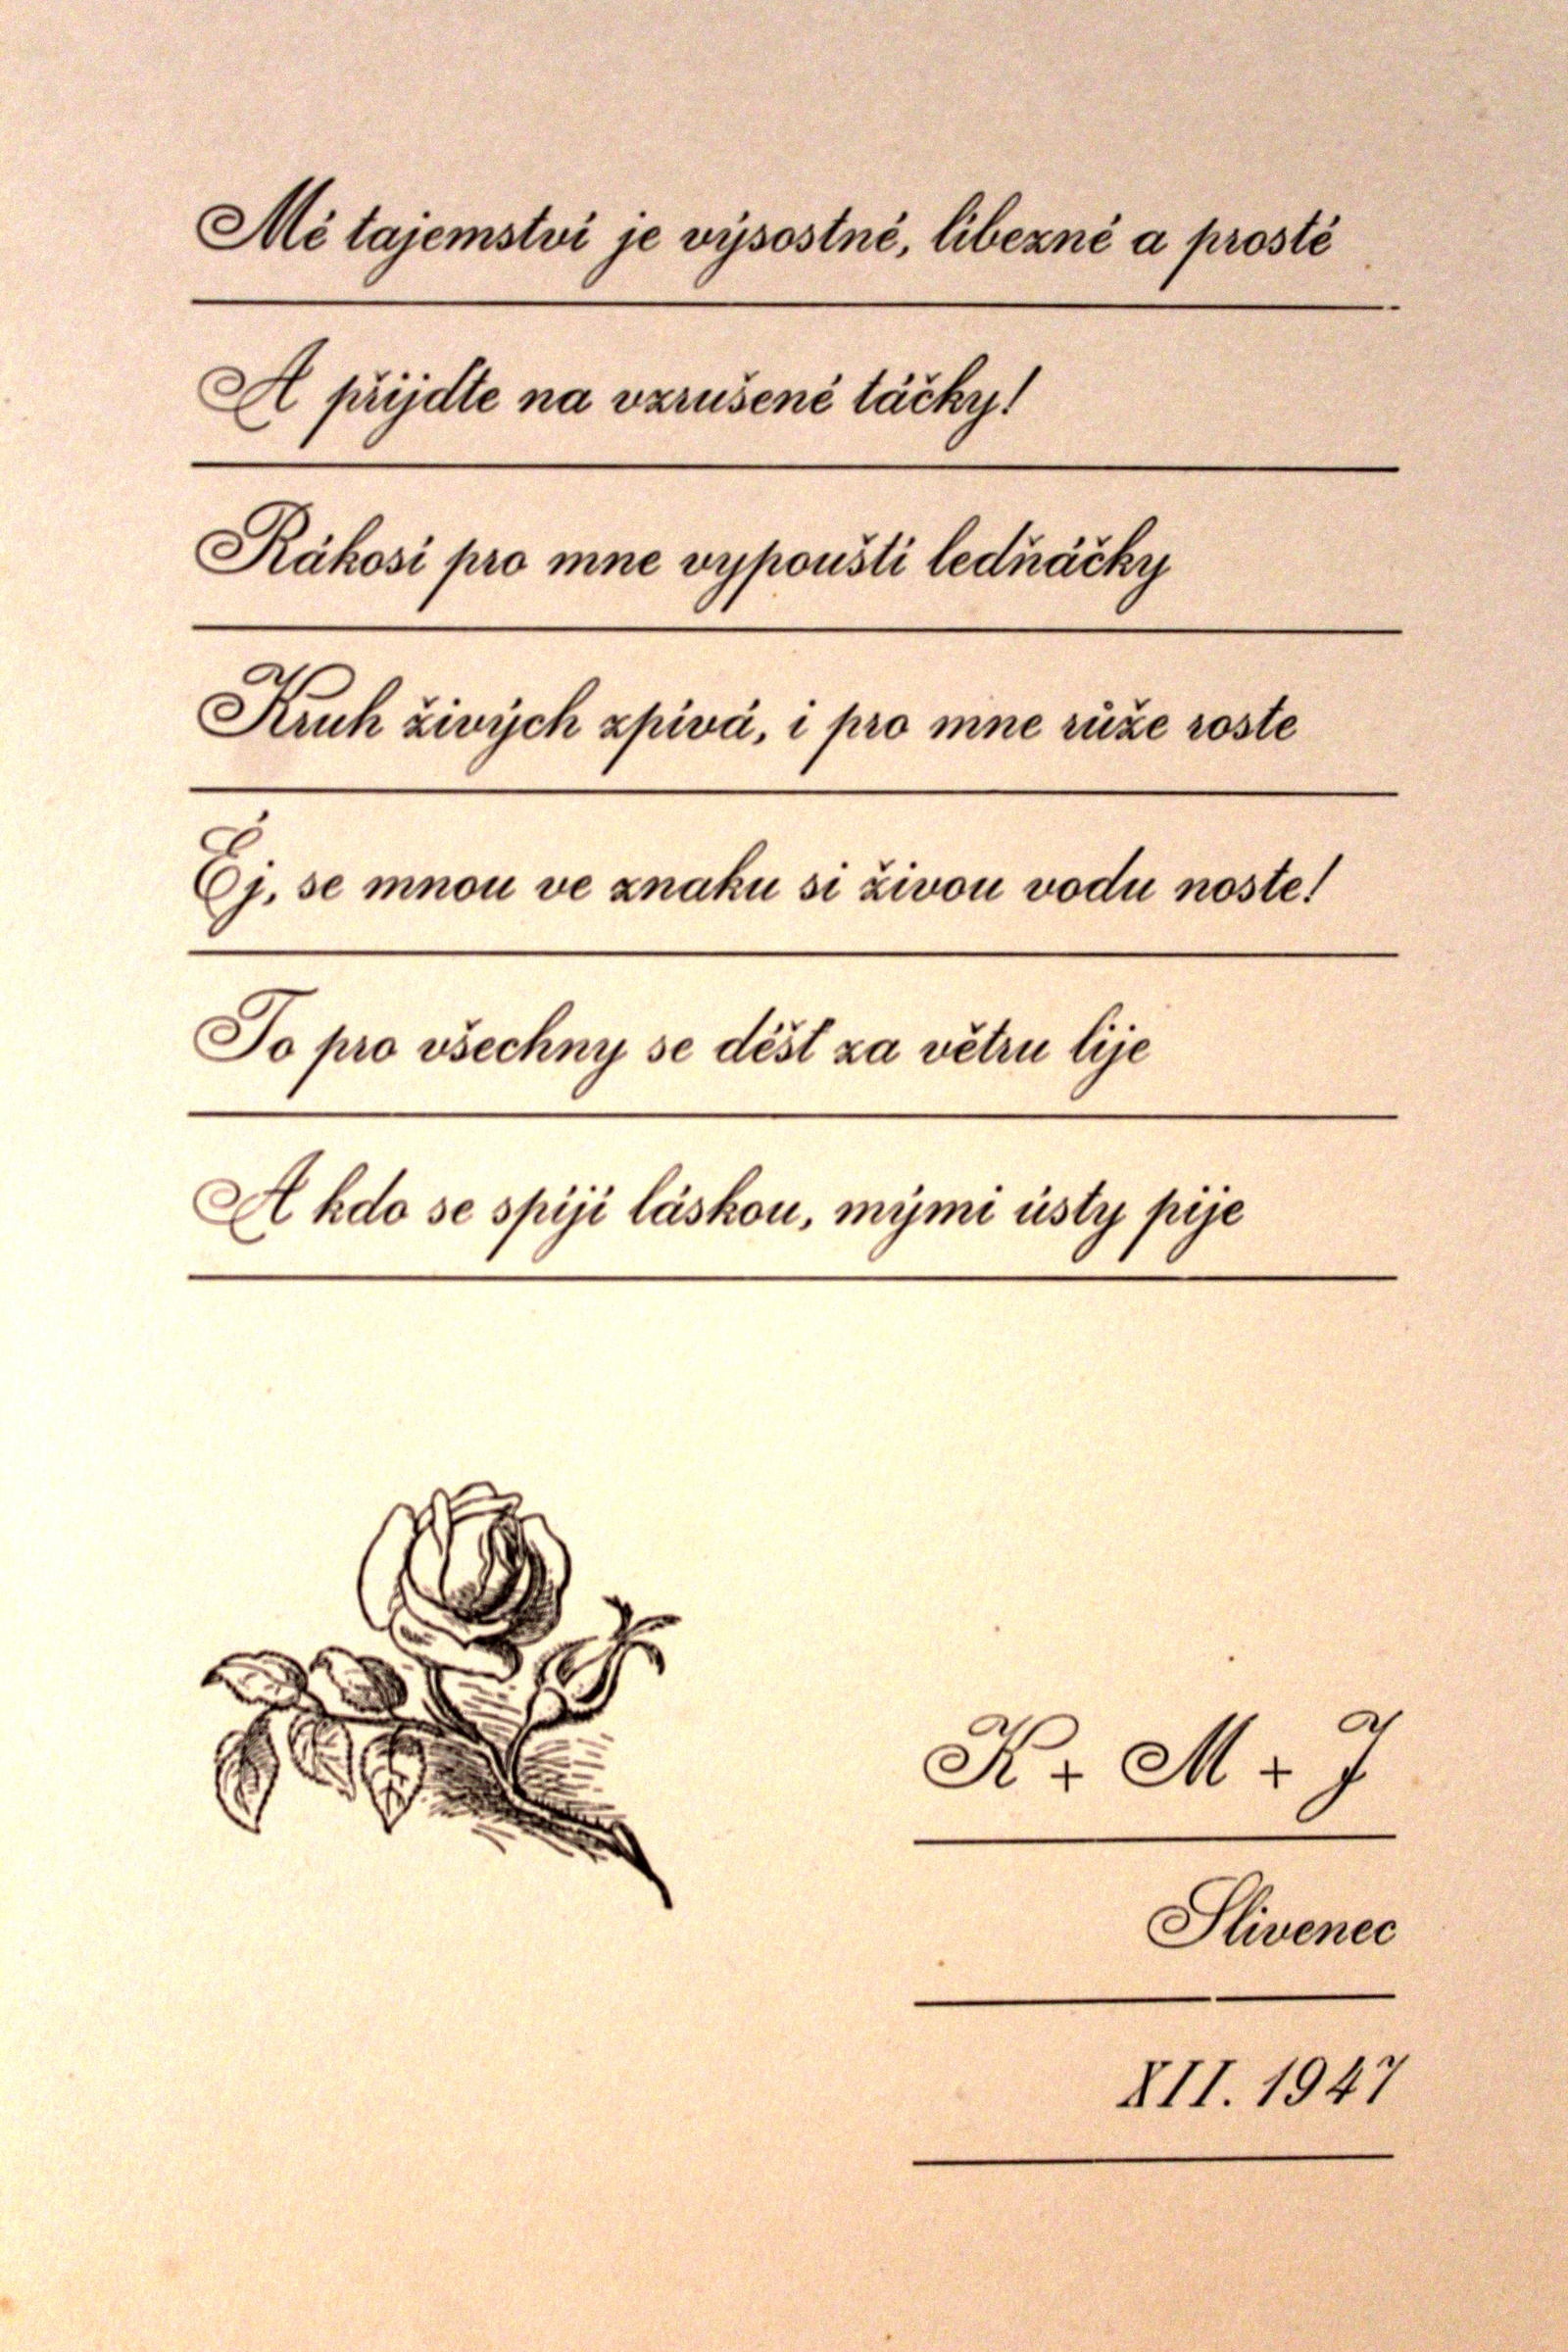 Mé tajemství je výsostné, líbezné a prosté
A přijďte na vzrušené táčky!
Rákosí pro mne vypouští ledňáčky
Kruh živých zpívá, i pro mne růže roste
Éj, se mnou ve znaku si živou vodu noste!
To pro všechny se déšť za větru lije
A kdo se spíjí láskou, mými ústy pije
K + M + J
Slivenec
XII. 1947